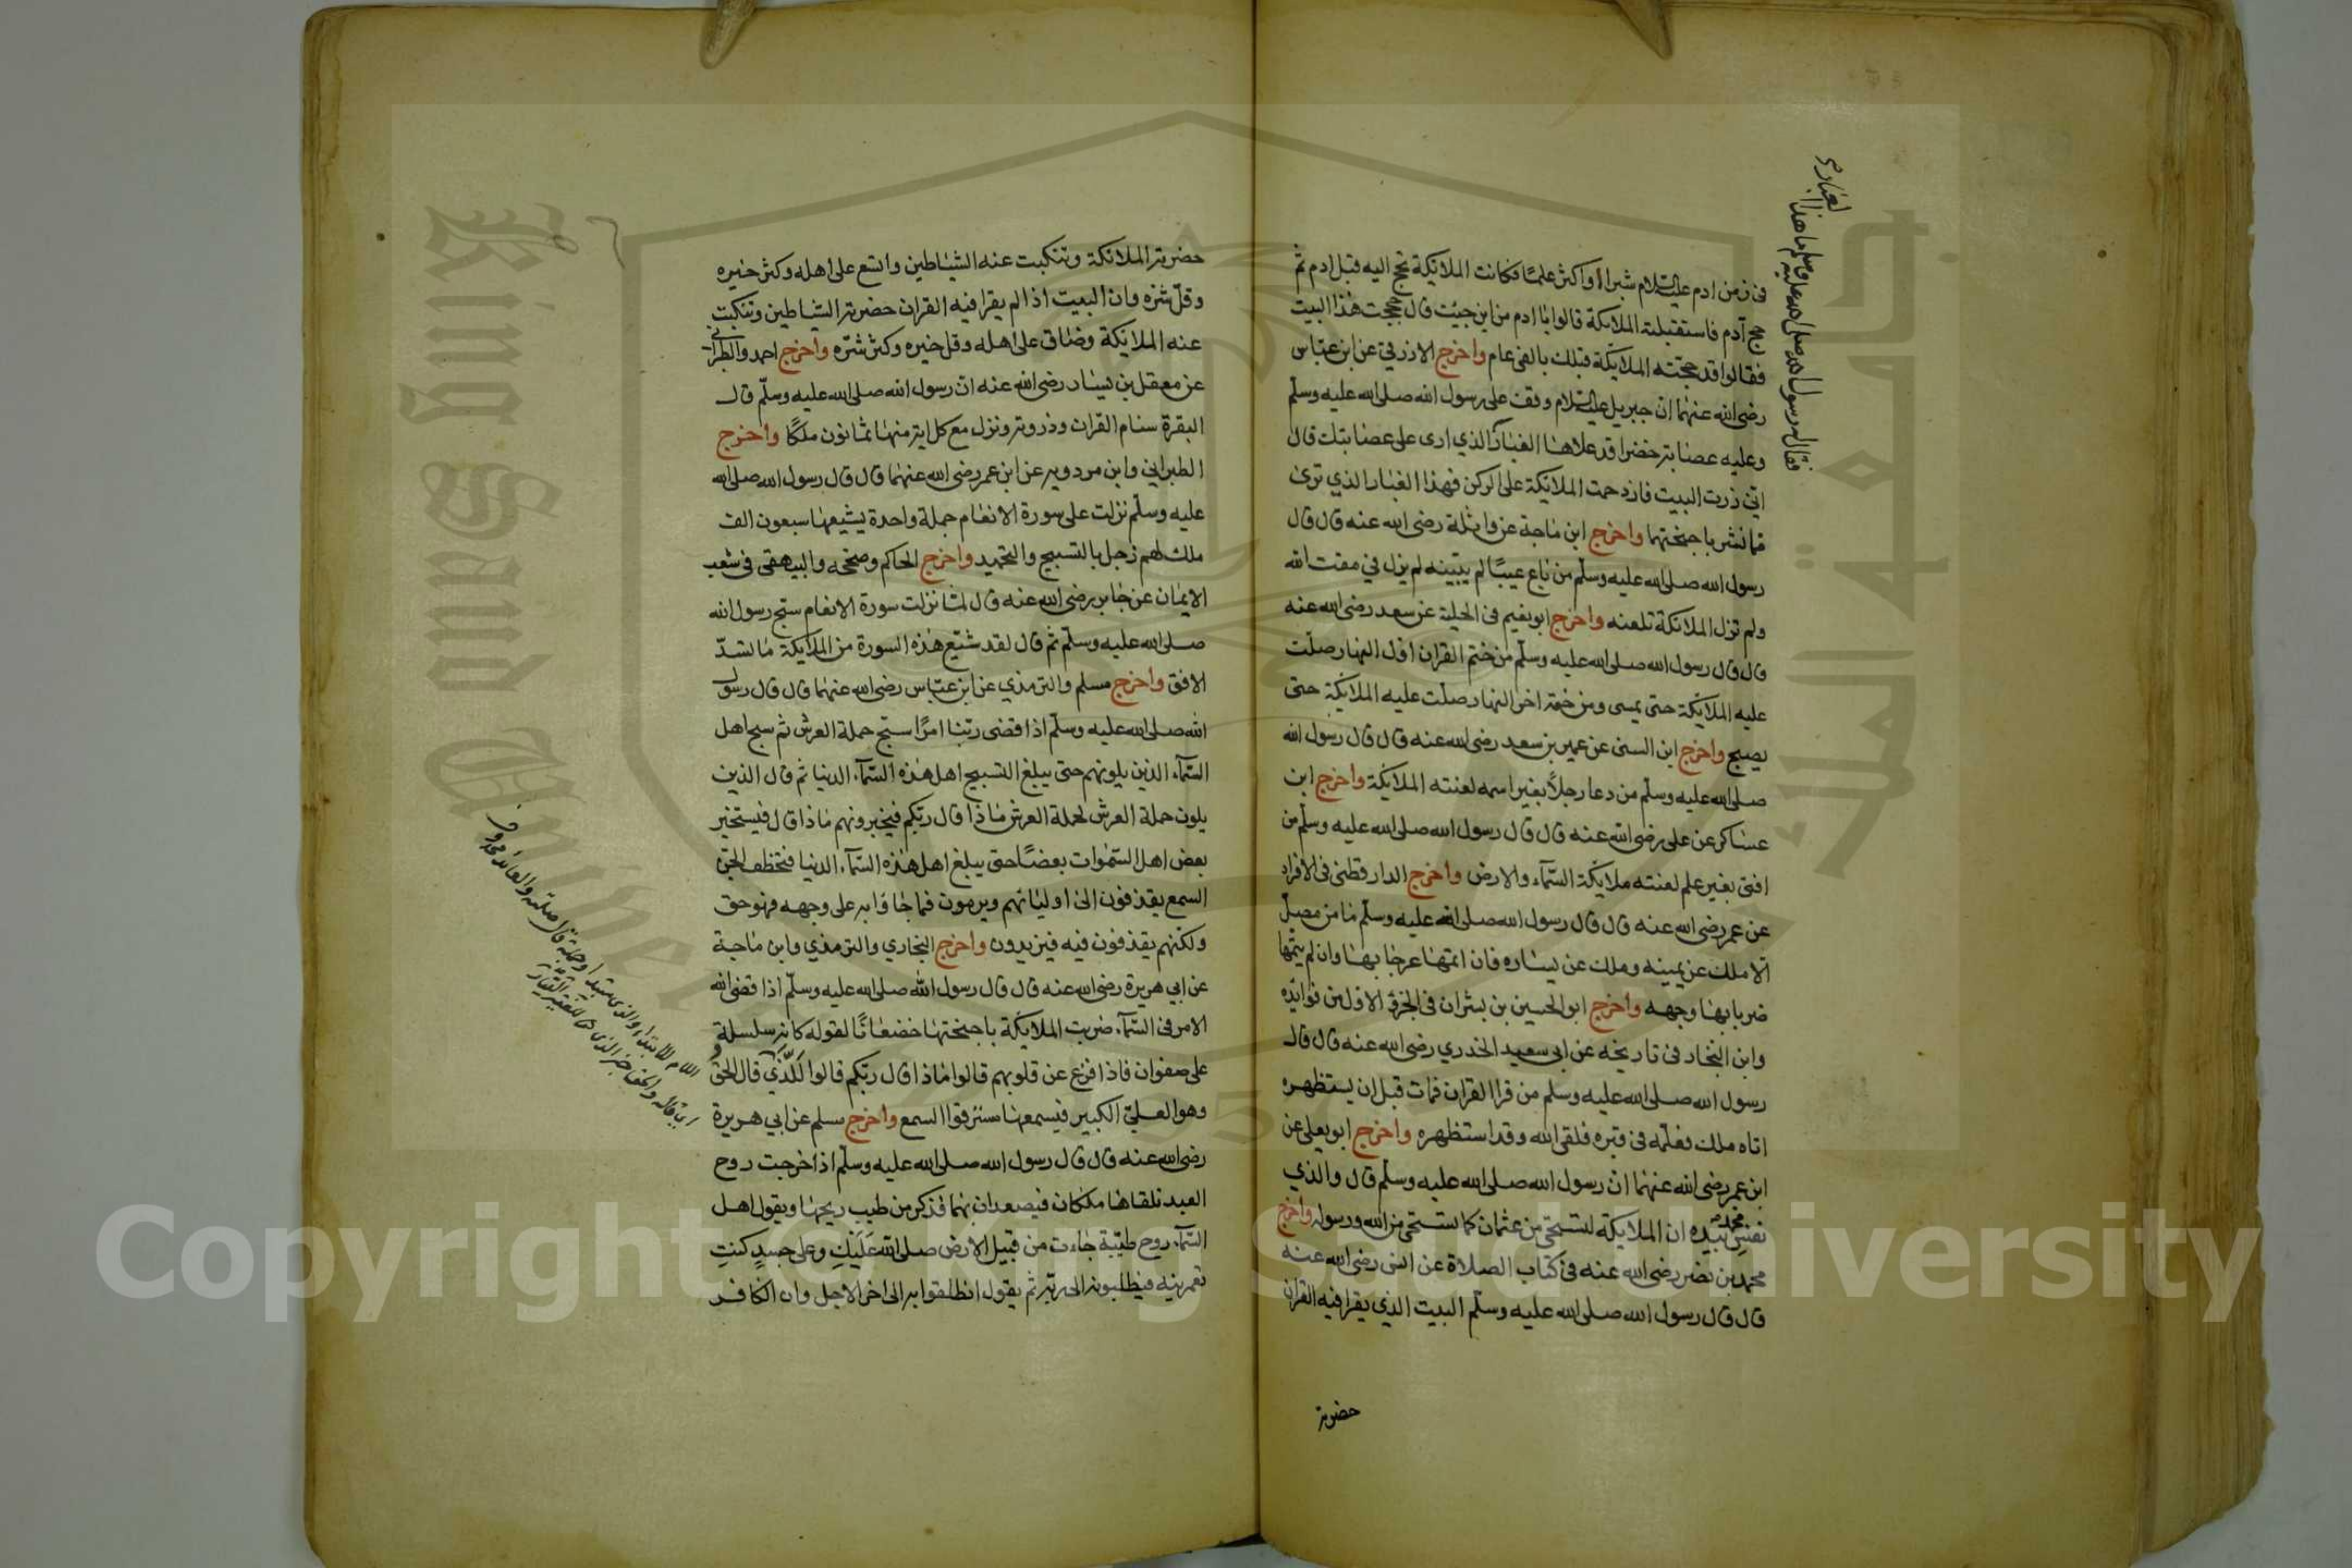 في زمن ادم عليه السلام شبرا او اكثر علما فكانت الملايكة تحج اليه قبل ادم ثم
حج آدم فاستقبلته الملايكة قالوا يا ادم من اين جيت قال حججت هذا البيت
فقالوا قد حجته الملايكة قبلك بالفي عام واخرج الازرقي عن ابن عباس
رضي الله عنهما ان جبريل عليه السلام وقف على رسول الله صلى الله عليه وسلم
وعليه عصابة خضرا قد علاها الغبار الذي ارى على عصابتك قال
اني زرت البيت فازدحمت الملايكة على الركن فهذا الغبار الذي ترى
مما تثير باجنحتها واخرج ابن ماجة عن واثلة رضي الله عنه قال قال
رسول الله صلى الله عليه وسلم من باع عيبا لم يبينه لم يزل في مقت الله
ولم تزل الملائكة تلعنه واخرج ابو نعيم في الحلية عن سعد رضي الله عنه
قال قال رسول الله صلى الله عليه وسلم من ختم القران اول النهار صلت
عليه الملايكة حتى يمسي ومن ختمه اخر النهار صلت عليه الملايكة حتى
يصبح واخرج ابن السني عن عمير بن سعد رضي الله عنه قال قال رسول الله
صلى الله عليه وسلم من دعا رجلا بغير اسمه لعنته الملايكة واخرج ابن
عساكر عن علي رضي الله عنه قال قال رسول الله صلى الله عليه وسلم من
افتى بغير علم لعنته ملايكة السمآء والارض واخرج الدارقطني في الافراد
عن عمر رضي الله عنه قال قال رسول الله صلى الله عليه وسلم ما من مصل
الا ملك عن يمينه وملك عن يساره فان اتمها عرجا بها وان لم يتمها
ضربا بها وجهه واخرج ابو الحسين بن بشران في الجزؤ الاول من فوائده
وابن النجار في تاريخه عن ابي سعيد الخدري رضي الله عنه قال قال
رسول الله صلى الله عليه وسلم من قرا القران فمات قبل ان يستظهره
اتاه ملك فعلمه في قبره فلقي الله وقد استظهره واخرج ابو يعلى عن
ابن عمر رضي الله عنهما ان رسول الله صلى الله عليه وسلم قال والذي
نفس محمد بيده ان الملايكة لتستحي من عثمان كما تستحي من الله ورسوله واخرج
محمد بن نصر رضي الله عنه في كتاب الصلاة عن انس رضي الله عنه
قال قال رسول الله صلى الله عليه وسلم البيت الذي يقرا فيه القران
حضرته
فقال له رسول الله صلى الله عليه وسلم ما هذا الغبار
حضرته الملائكة وتنكبت عنه الشياطين واتسع على اهله وكثر خيره
وقل شره وان البيت اذا لم يقرا فيه القران حضرته الشياطين وتنكبت
عنه الملايكة وضاق على اهله وقل خيره وكثر شره واخرج احمد والطبراني
عن معقل بن يسار رضي الله عنه ان رسول الله صلى الله عليه وسلم قال
البقرة سنام القران وذروته ونزل مع كل اية منها ثمانون ملكا واخرج
الطبراني وابن مردويه عن ابن عمر رضي الله عنهما قال قال رسول الله صلى الله
عليه وسلم نزلت علي سورة الانعام جملة واحدة يشيعها سبعون الف
ملك لهم زجل بالتسبيح والتحميد واخرج الحاكم وصححه والبيهقي في شعب
الايمان عن جابر رضي الله عنه قال لما نزلت سورة الانعام سبح رسول الله
صلى الله عليه وسلم ثم قال لقد شيع هذه السورة من الملايكة ما سد
الافق واخرج مسلم والترمذي عن ابن عباس رضي الله عنهما قال قال رسول
الله صلى الله عليه وسلم اذا قضى ربنا امرا سبح حملة العرش ثم سبح اهل
السمآء الذين يلونهم حتى يبلغ التسبيح اهل هذه السمآء الدنيا ثم قال الذين
يلون حملة العرش لحملة العرش ماذا قال ربكم فيخبرونهم ماذا قال فيستخبر
بعض اهل السموات بعضا حتى يبلغ اهل هذه السمآء الدنيا فتخطف الجن
السمع يقذفون الى اوليائهم ويرمون فما جاؤا به على وجهه فهو حق
ولكنهم يقذفون فيه فيزيدون واخرج البخاري والترمذي وابن ماجة
عن ابي هريرة رضي الله عنه قال قال رسول الله صلى الله عليه وسلم اذا قضى الله
الامر في السمآء ضربت الملايكة باجنحتها خضعانا لقوله كانه سلسلة
على صفوان فاذا فزع عن قلوبهم قالوا ماذا قال ربكم قالوا للذي قال الحق
وهو العلي الكبير فيسمعها مسترقوا السمع واخرج مسلم عن ابي هريرة
رضي الله عنه قال قال رسول الله صلى الله عليه وسلم اذا خرجت روح
العبد تلقاها ملكان فيصعدان بهما فذكر من طيب ريحها ويقول اهل
السمآء روح طيبة جاءت من قبيل الارض صلى الله عليك وعلى جسد كنت
تعمرينه فينطلبونه الى ربه ثم يقول انطلقوا به الى اخر الاجل وان الكافر
اللام للابتداء والذي مبتدا وجملة قال صلته والعائد محذوف
اي قاله والحق خبر الذي
King Saud University
Copyright © King Saud University